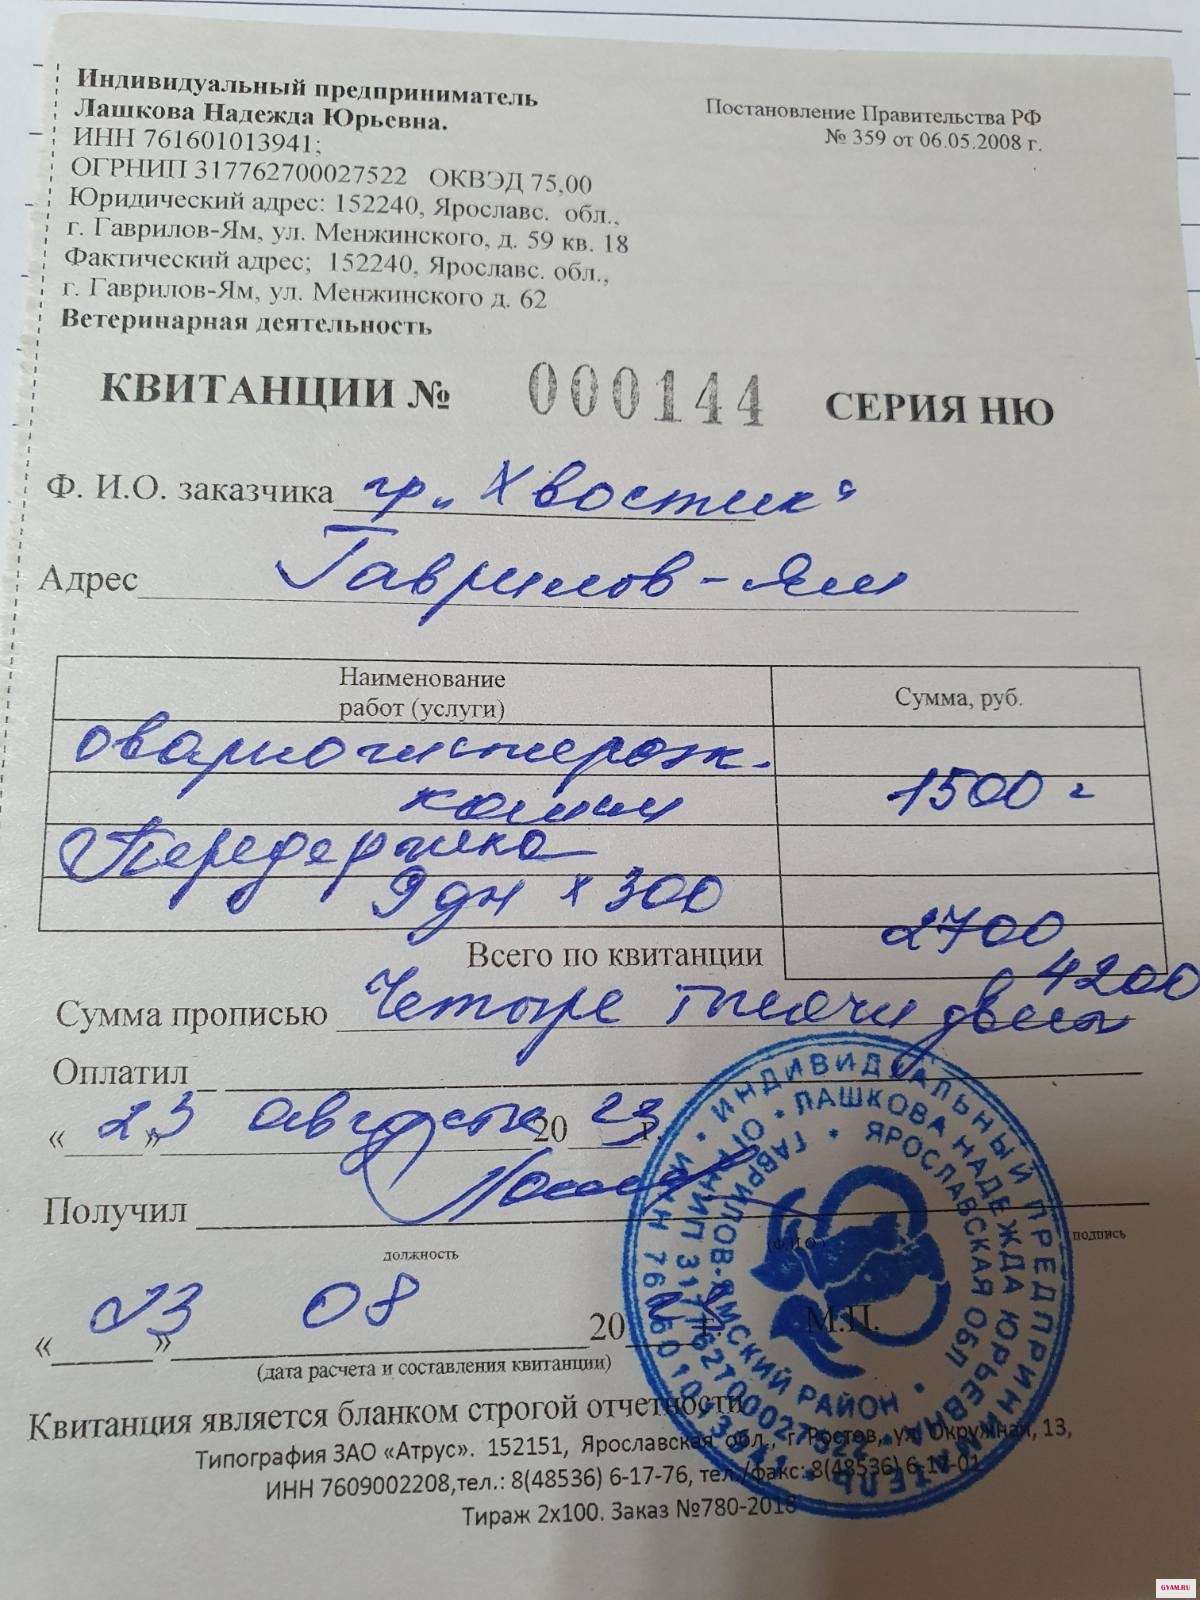 Индивидуальный предприниматель
Лашкова Надежда Юрьевна.
ИНН 761601013941;
ОГРНИП 317762700027522 ОКВЭД 75,00
Юридический адрес: 152240, Ярославс. обл.,
г. Гаврилов-Ям, ул. Менжинского, д. 59 кв. 18
Фактический адрес; 152240, Ярославс. обл.,
г. Гаврилов-Ям, ул. Менжинского д. 62
Ветеринарная деятельность
Постановление Правительства РФ
№ 359 от 06.05.2008 г.
КВИТАНЦИИ № 000144 СЕРИЯ НЮ
Ф. И.О. заказчика гр „Хвостик“
Адрес Гаврилов-Ям
Наименование
работ (услуги)
Сумма, руб.
овариогистерэк.
кошки 1500
Передержка
9 дн х 300
2700
Всего по квитанции 4200
Сумма прописью Четыре тысячи двести
Оплатил
« 23 » августа 20 23 г.
Получил
должность
(Ф.И.О.)
подпись
« 23 » 08 20 г. М.П.
(дата расчета и составления квитанции)
Квитанция является бланком строгой отчетности
Типография ЗАО «Атрус». 152151, Ярославская обл., г. Ростов, ул. Окружная, 13,
ИНН 7609002208,тел.: 8(48536) 6-17-76, тел./факс: 8(48536) 6-17-01
Тираж 2х100. Заказ №780-2018
ИНДИВИДУАЛЬНЫЙ ПРЕДПРИНИМАТЕЛЬ * ИНН 761601013941 *
ЛАШКОВА НАДЕЖДА ЮРЬЕВНА * ОГРНИП 317762700027522 *
ЯРОСЛАВСКАЯ ОБЛ * ГАВРИЛОВ-ЯМСКИЙ РАЙОН *
GYAM.RU